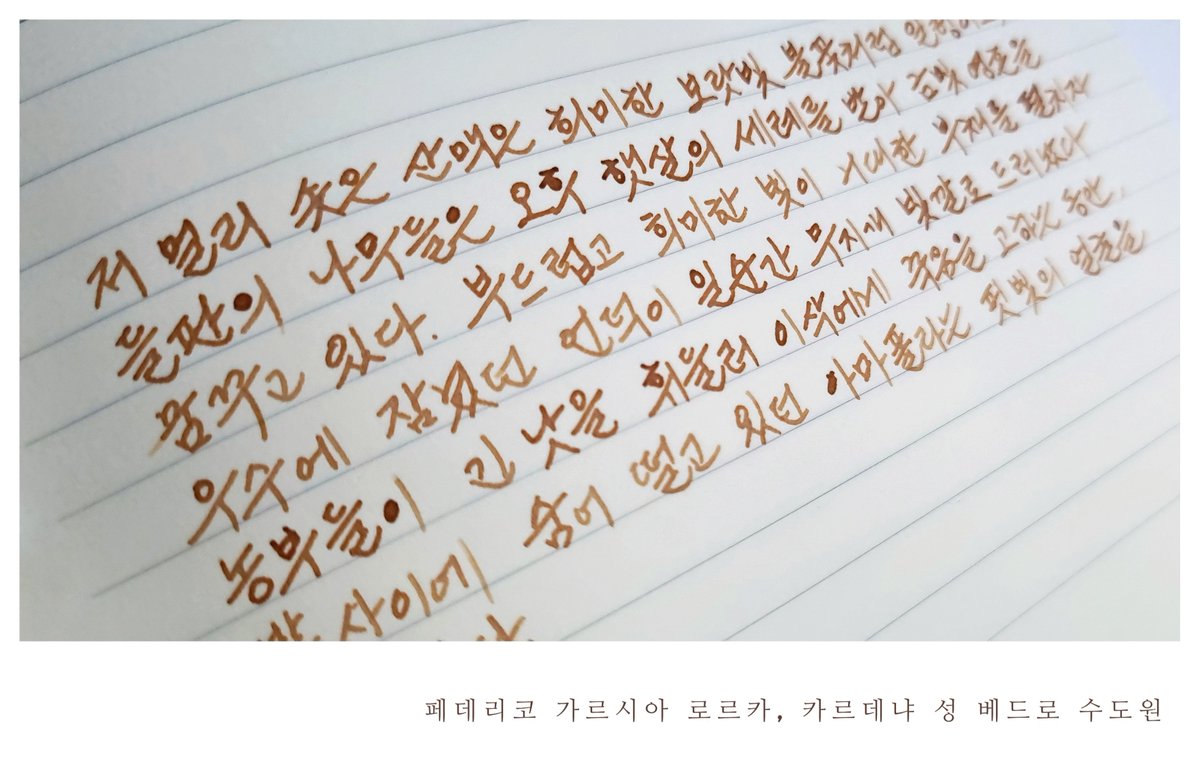 저 멀리 솟은 산맥은 희미한 보랏빛 불꽃처럼
들판의 나무들은 오후 햇살의 세례를 받아 금빛 영혼을
꿈꾸고 있다. 부드럽고 희미한 빛이 거대한 부채를 펼치자
우수에 잠겼던 언덕이 일순간 무지개 빛깔로 드러났다
농부들이 긴 낫을 휘둘러 이삭에게 죽음을 고하는 동안,
사이에 숨어 떨고 있던 아마폴라는 핏빛의 얼굴을
페데리코 가르시아 로르카, 카르데냐 성 베드로 수도원